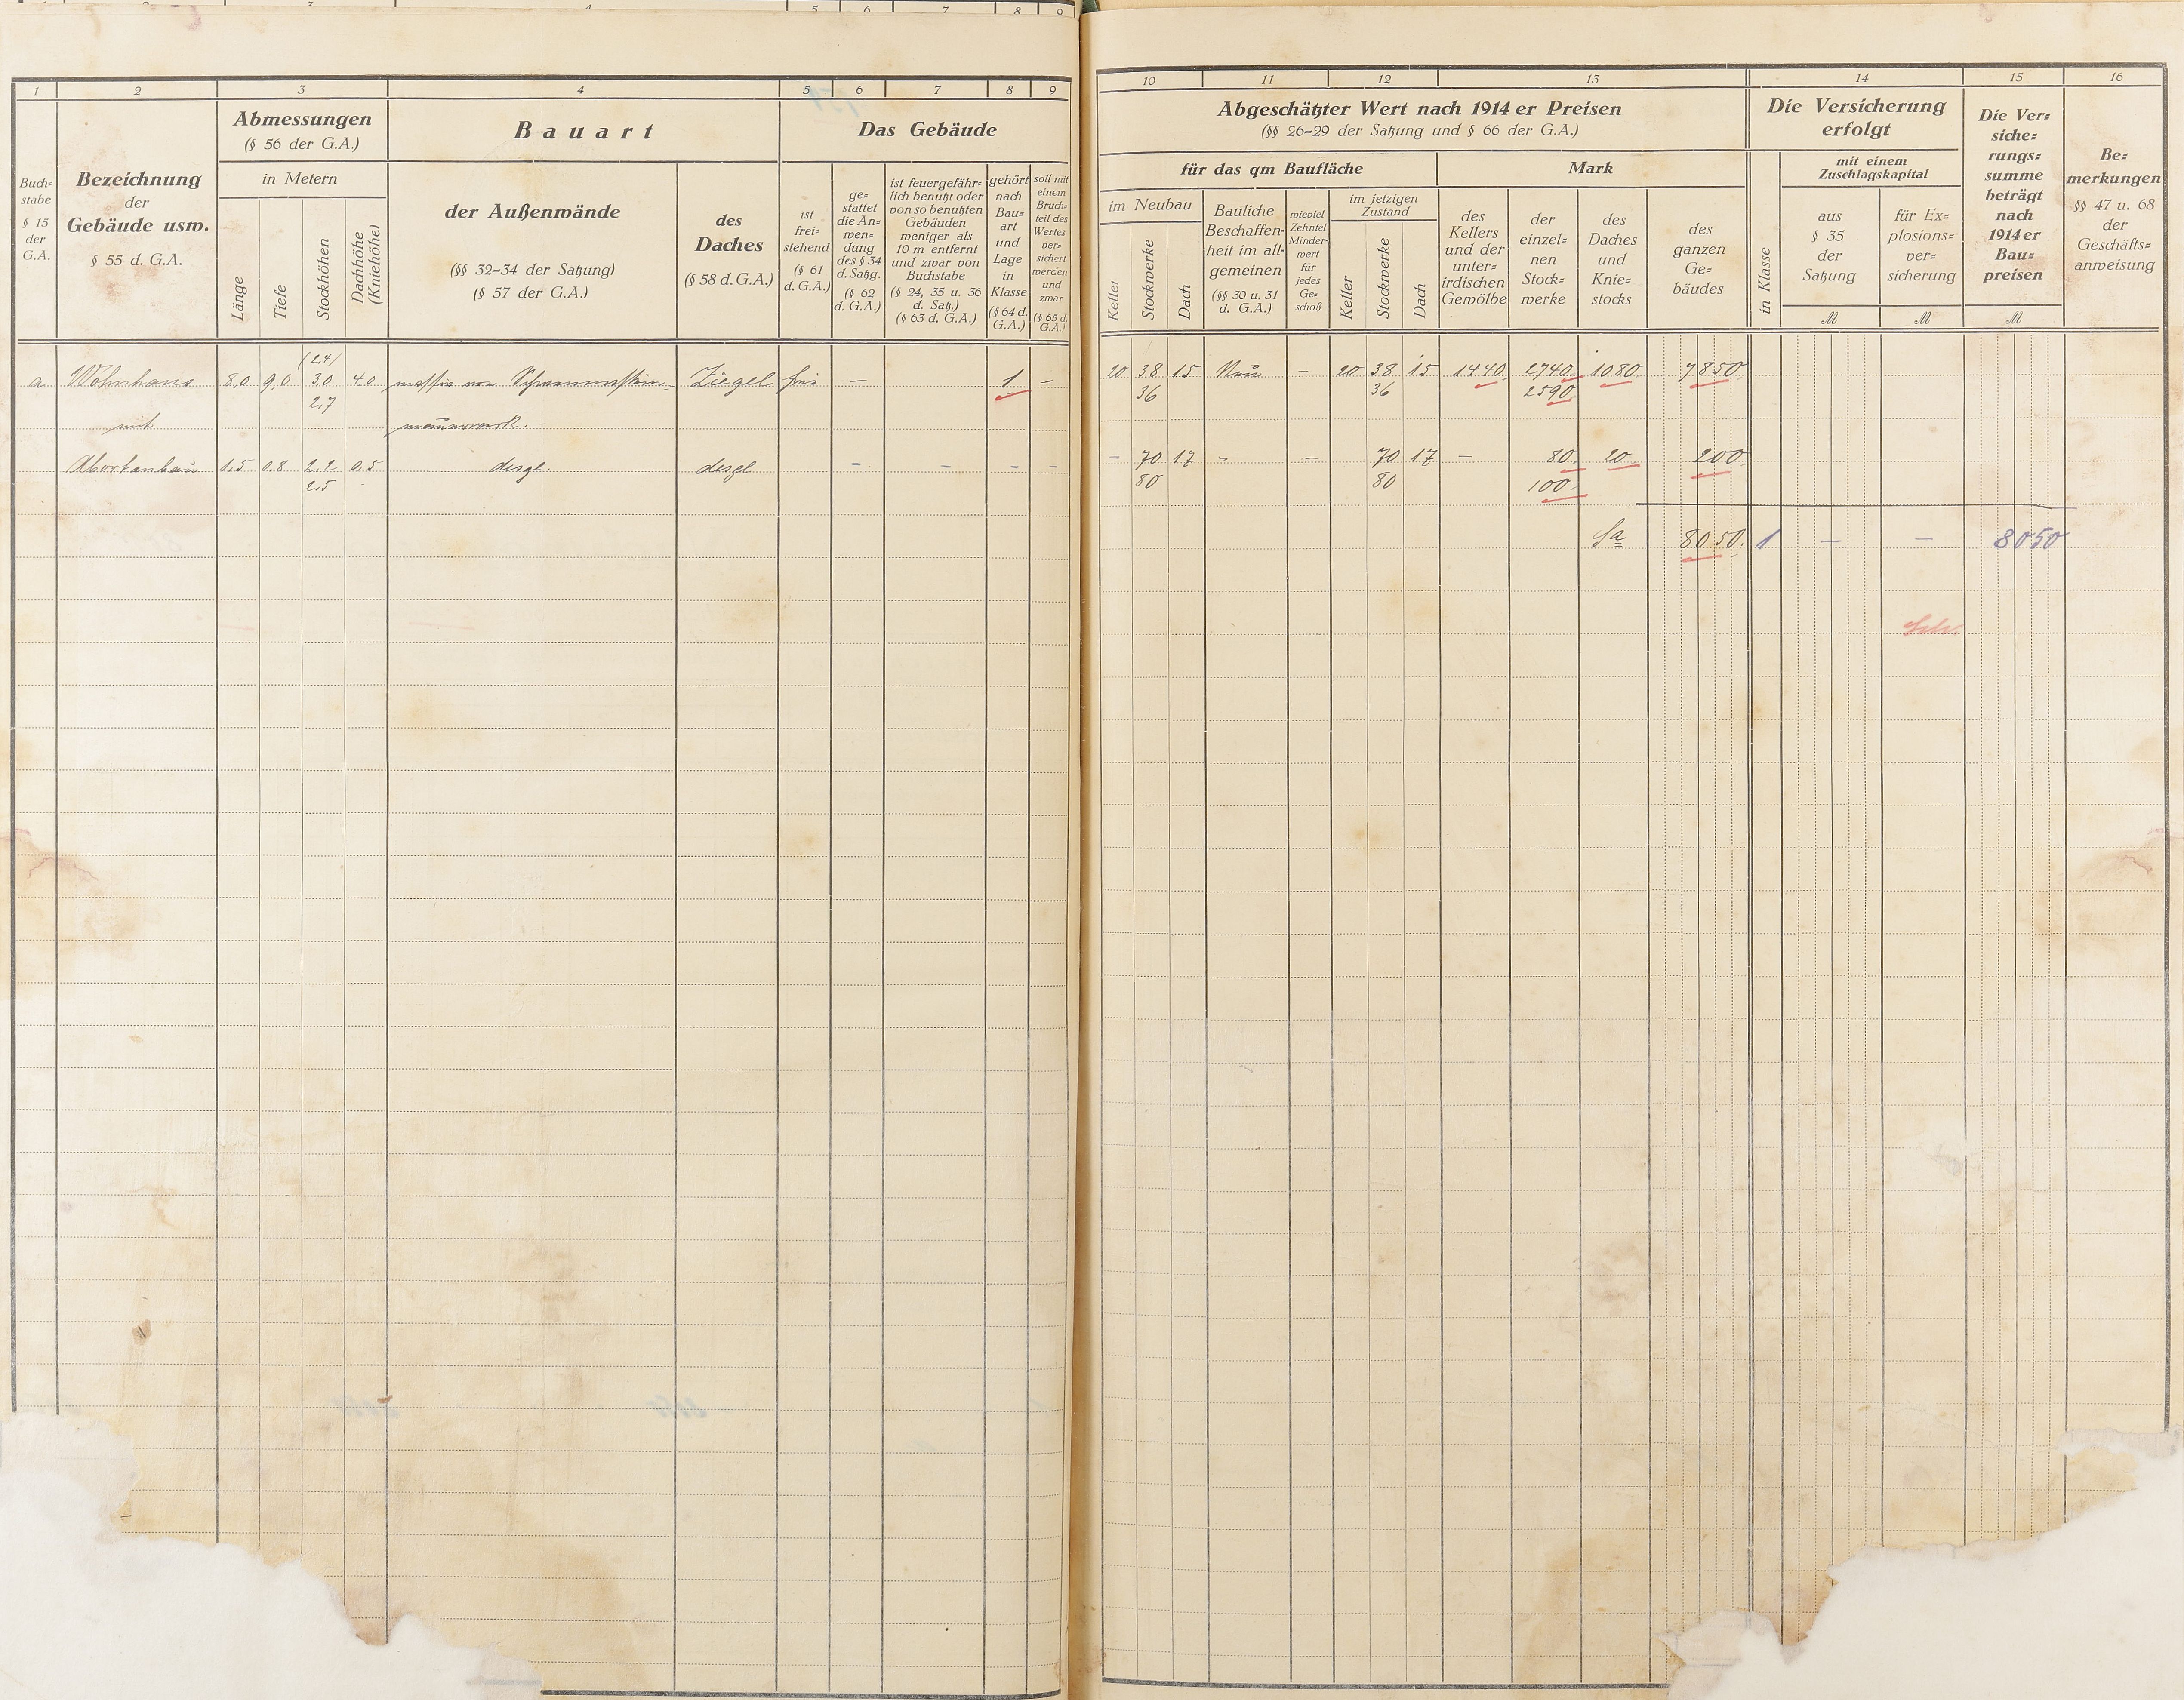 1 2 3 4 5 6 7 8 9
Abmessungen
(§ 56 der G.A.)
Bauart
Das Gebäude
Buch=
stabe
§ 15
der
G.A.
Bezeichnung
der
Gebäude usw.
§ 55 d. G.A.
in Metern
Länge
Tiefe
Stockhöhen
Dachhöhe
(Kniehöhe)
der Außenwände
(§§ 32–34 der Satzung)
(§ 57 der G.A.)
des
Daches
(§ 58 d. G.A.)
ist
frei=
stehend
(§ 61
d. G.A.)
ge=
stattet
die An=
wen=
dung
des § 34
d. Satzg.
(§ 62
d. G.A.)
ist feuergefähr=
lich benutzt oder
von so benutzten
Gebäuden
weniger als
10 m entfernt
und zwar von
Buchstabe
(§ 24, 35 u. 36
d. Satz.)
(§ 63 d. G.A.)
gehört
nach
Bau=
art
und
Lage
in
Klasse
(§ 64 d.
G.A.)
soll mit
einem
Bruch=
teil des
Wertes
ver=
sichert
werden
und
zwar
(§ 65 d.
G.A.)
(2,4)
a Wohnhaus 8,0 9,0 3,0 4,0 massiv von Schwemmstein- Ziegel frei — 1 —
2,7
mit mauerwerk. -
Abortanbau 1,5 0,8 2,2 0,5 desgl. desgl. – – – –
2,5
10 11 12 13 14 15 16
Abgeschätzter Wert nach 1914 er Preisen
(§§ 26–29 der Satzung und § 66 der G.A.)
Die Versicherung
erfolgt
Die Ver=
siche=
rungs=
summe
beträgt
nach
1914 er
Bau=
preisen
Be=
merkungen
§§ 47 u. 68
der
Geschäfts=
anweisung
für das qm Baufläche
Mark
mit einem
Zuschlagskapital
im Neubau
Keller
Stockwerke
Dach
Bauliche
Beschaffen-
heit im all-
gemeinen
(§§ 30 u. 31
d. G.A.)
wieviel
Zehntel
Minder-
wert
für
jedes
Ge-
schoß
im jetzigen
Zustand
Keller
Stockwerke
Dach
des
Kellers
und der
unter=
irdischen
Gewölbe
der
einzel=
nen
Stock=
werke
des
Daches
und
Knie=
stocks
des
ganzen
Ge=
bäudes
in Klasse
aus
§ 35
der
Satzung
für Ex=
plosions=
ver=
sicherung
M M M
20 38 15 Neu – 20 38 15 1440 2740 1080 7850
36 36 2590
– 70 17 – – 70 17 – 80 20 200
80 80 100
Sa 8050 1 – – 8050